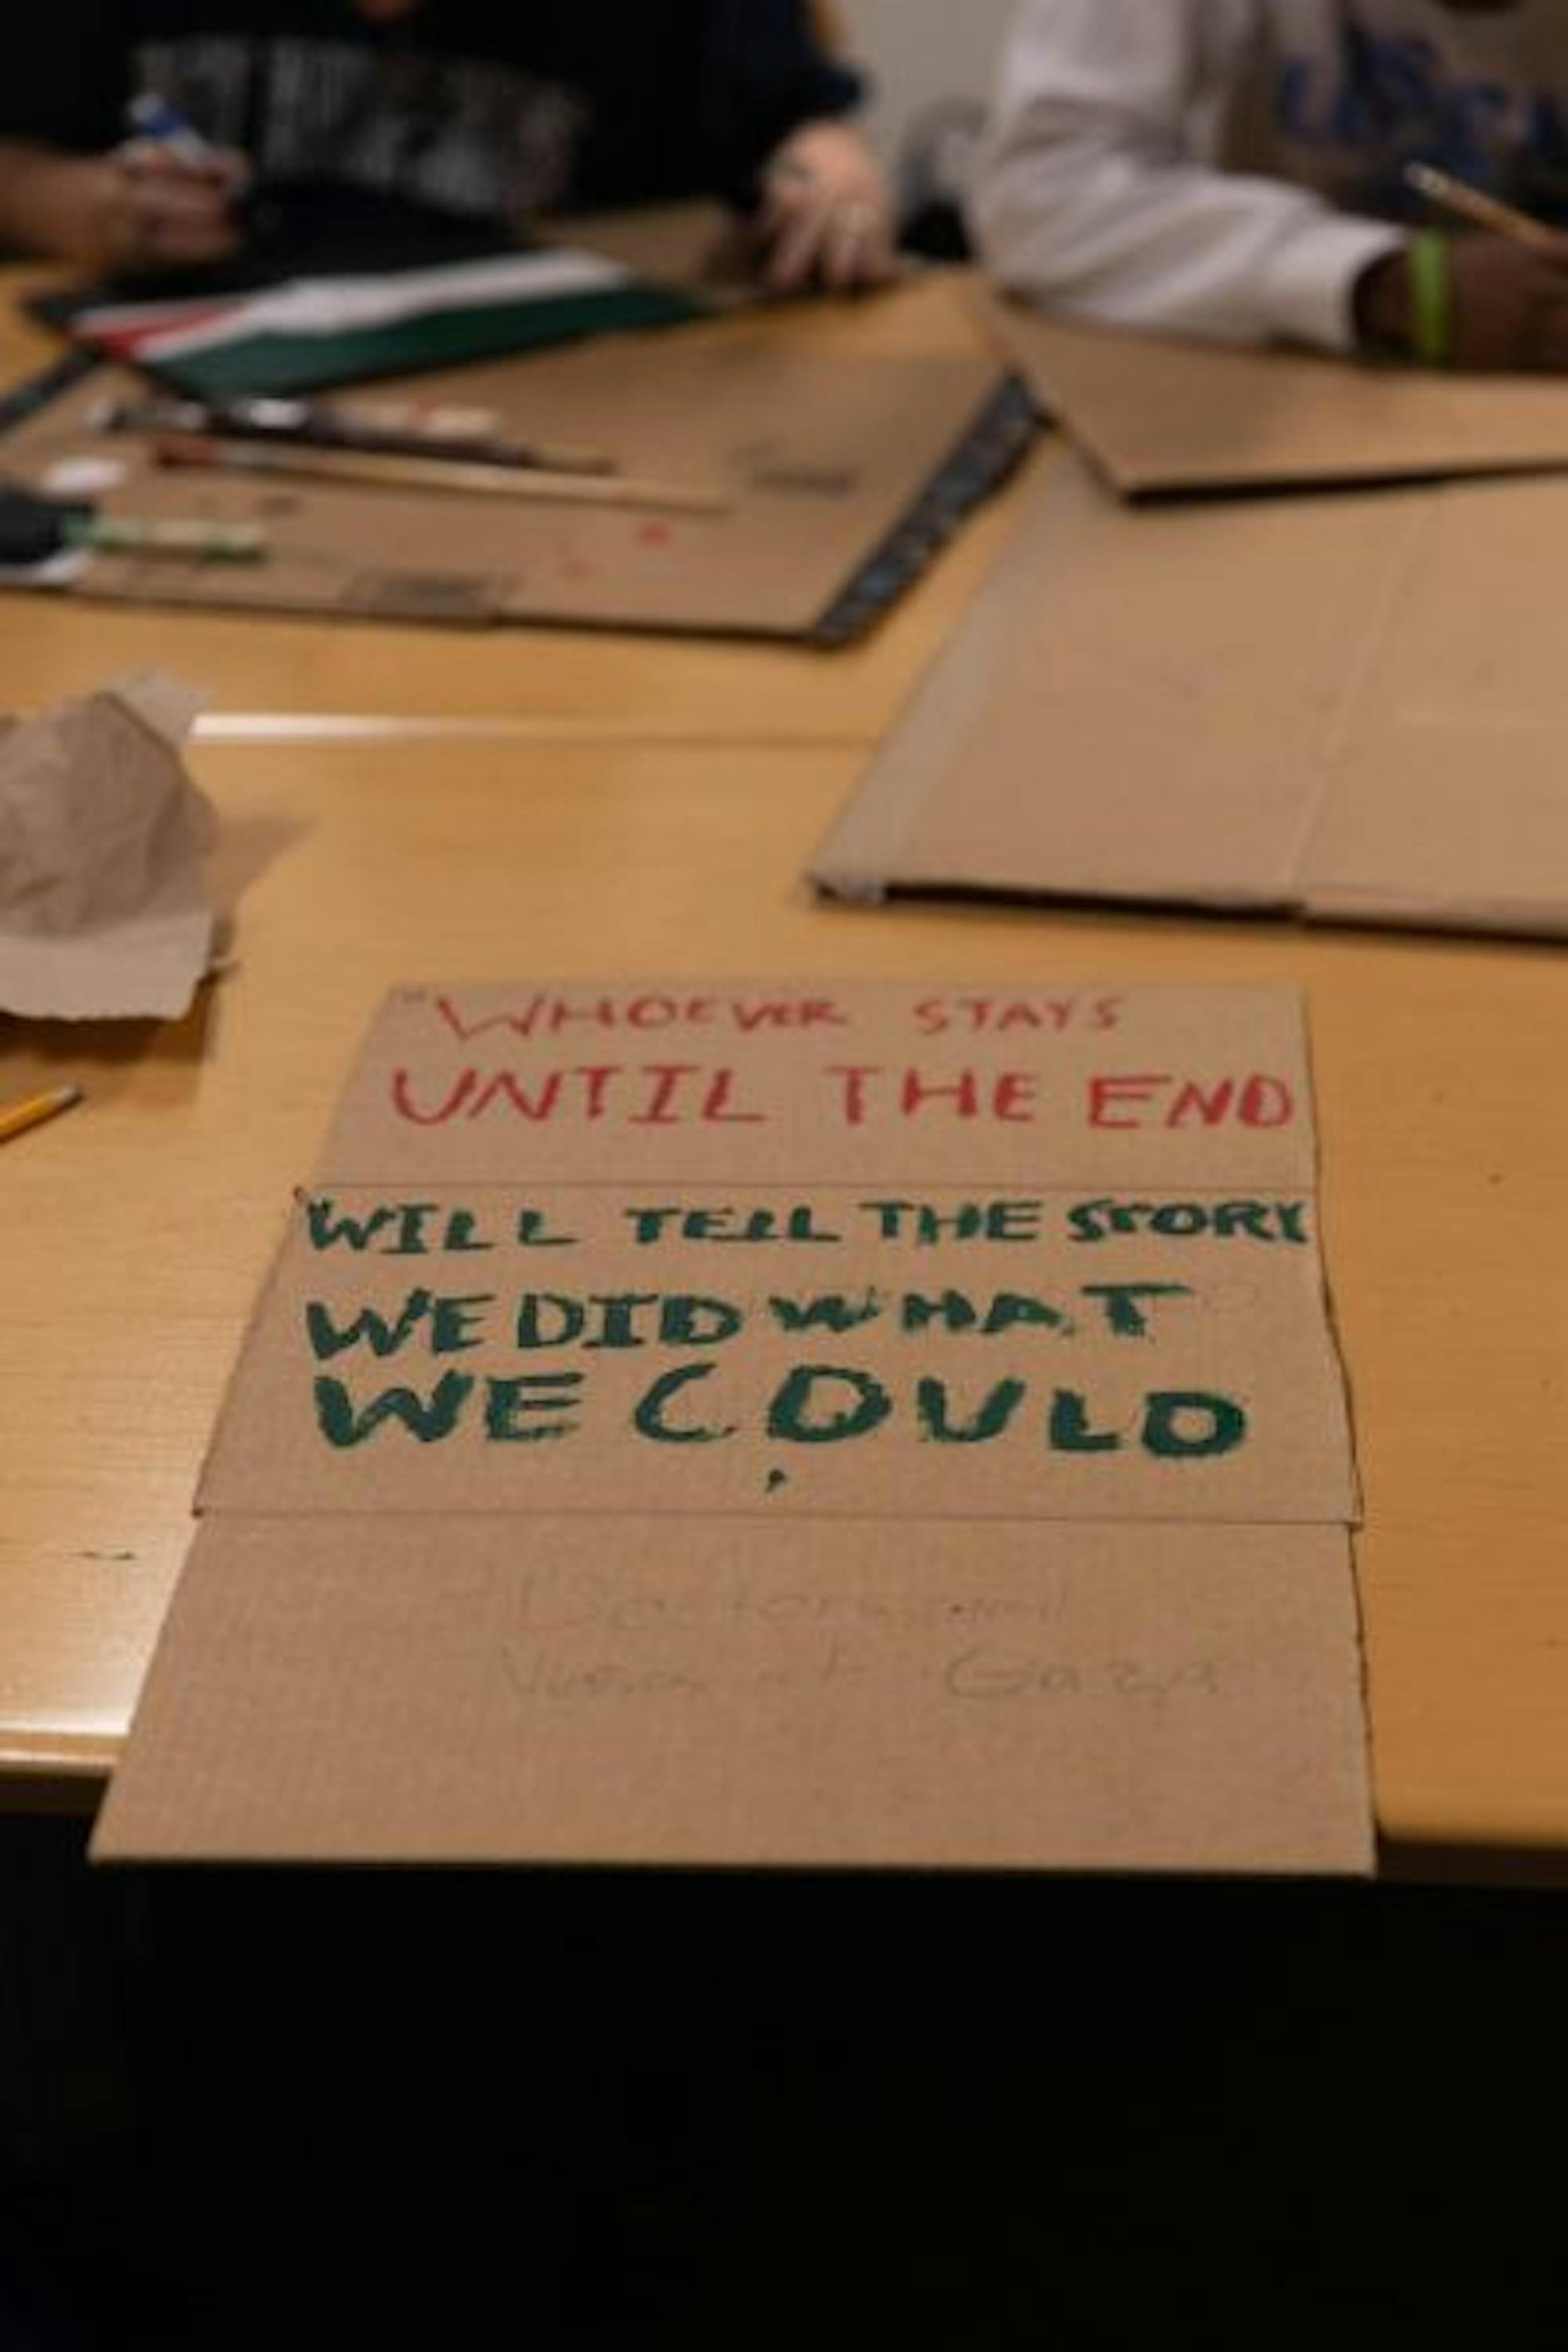 "WHOEVER STAYS
UNTIL THE END
WILL TELL THE STORY
WE DID WHAT
WE COULD
Doctors
Gaza